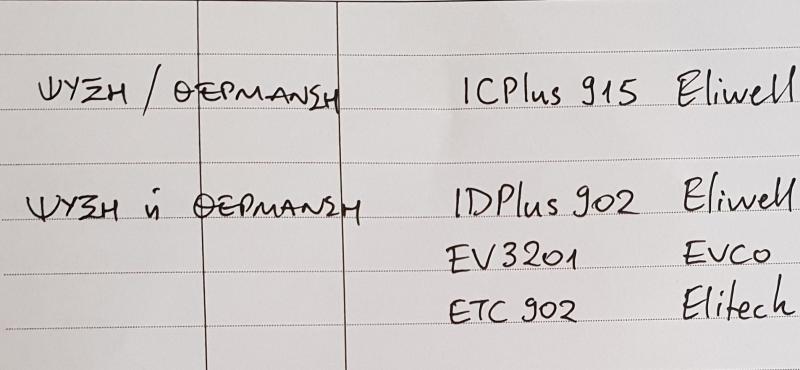 ΨΥΞΗ / ΘΕΡΜΑΝΣΗ ICPlus 915 Eliwell
ΨΥΞΗ ή ΘΕΡΜΑΝΣΗ IDPlus 902 Eliwell
EV3201 EVCO
ETC 902 Elitech